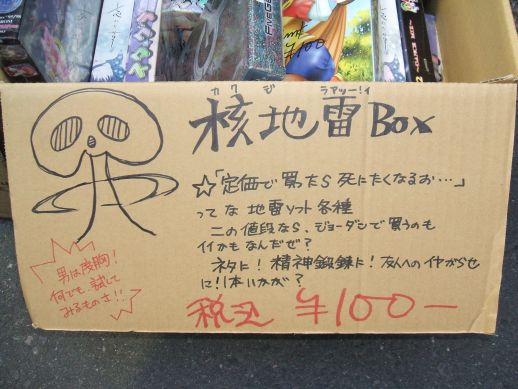 ¥100
カクジ ラアッー!イ
核地雷Box
☆「定価で買ったら死にたくなるお…」
ってな地雷ソフト各種
この値段なら、ジョーダンで買うのも
イイかもなんだぜ?
ネタに!精神鍛錬に!友人へのイヤがらせ
に!1本いかが?
税込 ¥100-
男は度胸!
何でも試して
みるものさ!!